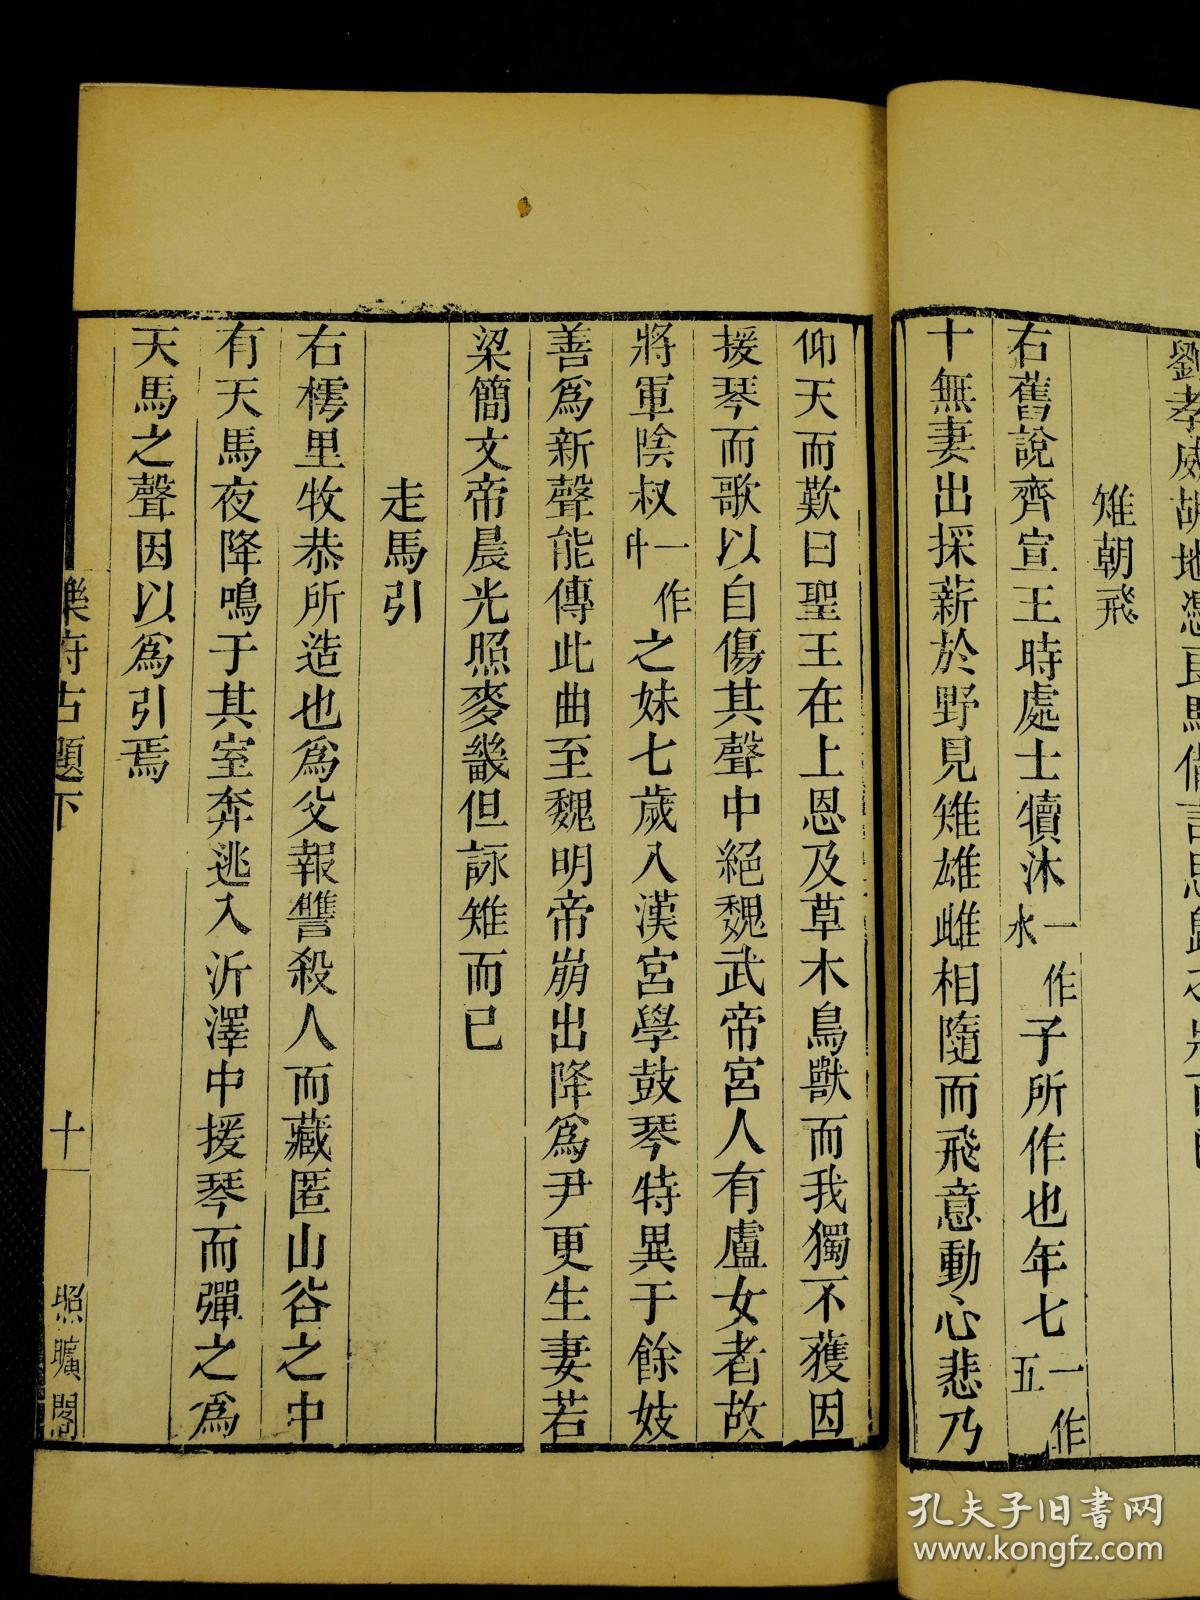 劉孝威胡地憑良馬備言思歸之
雉朝飛
右舊說齊宣王時處士犢沐一作水子所作也年七一作五
十無妻出採薪於野見雉雄雌相隨而飛意動心悲乃
仰天而歎曰聖王在上恩及草木鳥獸而我獨不獲因
援琴而歌以自傷其聲中絕魏武帝宮人有盧女者故
將軍陰叔一作中之妹七歲入漢宮學鼓琴特異于餘妓
善爲新聲能傳此曲至魏明帝崩出降爲尹更生妻若
梁簡文帝晨光照麥畿但詠雉而已
走馬引
右樗里牧恭所造也爲父報讐殺人而藏匿山谷之中
有天馬夜降鳴于其室奔逃入沂澤中援琴而彈之爲
天馬之聲因以爲引焉
樂府古題下 十 照曠閣
孔夫子旧书网
www.kongfz.com